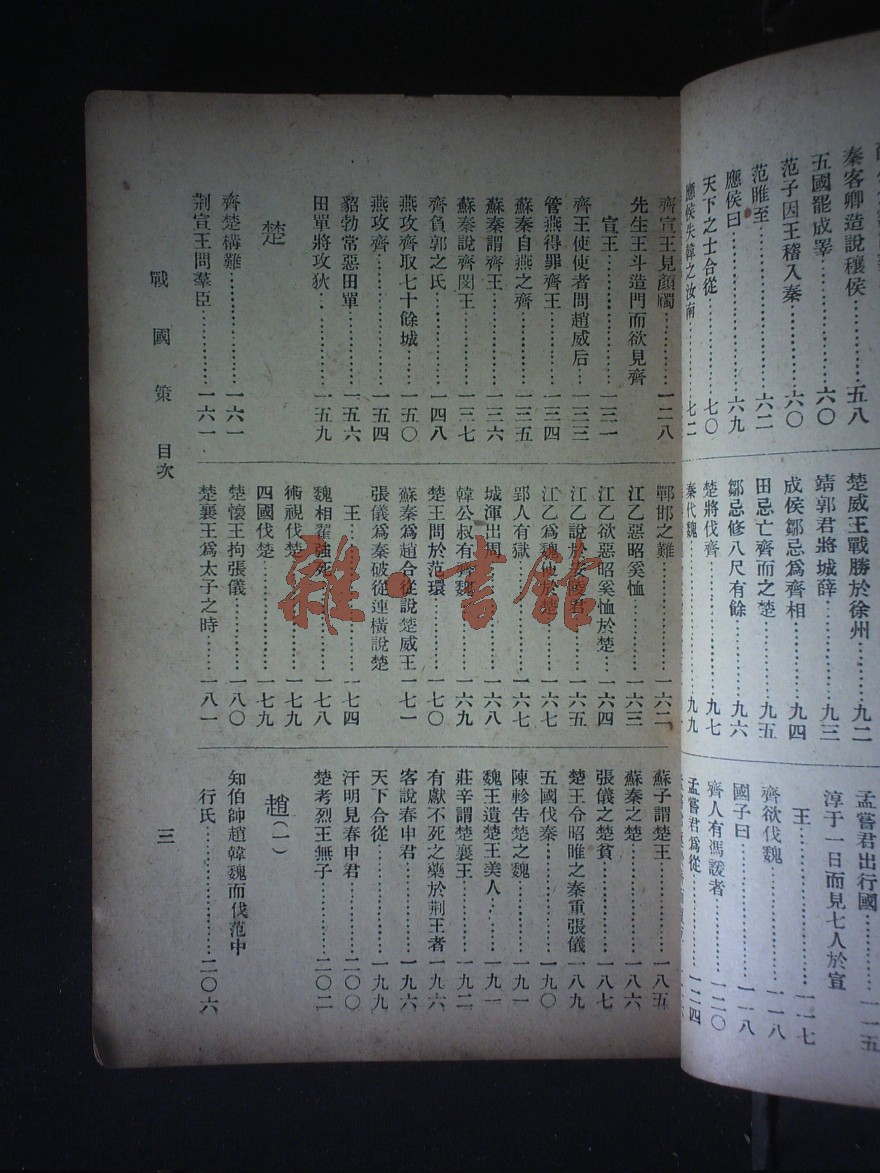 秦客卿造說穰侯…………五八
五國罷成睪…………六〇
范子因王稽入秦…………六〇
范雎至…………六二
應侯曰…………六九
天下之士合從…………七〇
應侯失韓之汝南…………七二
楚威王戰勝於徐州…………九二
靖郭君將城薛…………九三
成侯鄒忌爲齊相…………九四
田忌亡齊而之楚…………九五
鄒忌修八尺有餘…………九六
楚將伐齊…………九七
秦伐魏…………九九
孟嘗君出行國…………一一五
淳于一日而見七人於宣
王…………一一七
齊欲伐魏…………一一八
國子曰…………一一八
齊人有馮諼者…………一二〇
孟嘗君爲從…………一二四
齊宣王見顏斶…………一二八
先生王斗造門而欲見齊
宣王…………一三一
齊王使使者問趙威后…………一三三
管燕得罪齊王…………一三四
蘇秦自燕之齊…………一三五
蘇秦謂齊王…………一三六
蘇秦說齊閔王…………一三七
齊負郭之氏…………一四八
燕攻齊取七十餘城…………一五〇
燕攻齊…………一五四
貂勃常惡田單…………一五六
田單將攻狄…………一五九
楚
齊楚構難…………一六一
荆宣王問羣臣…………一六一
邯邯之難…………一六二
江乙惡昭奚恤…………一六三
江乙欲惡昭奚恤於楚…………一六四
江乙說於安陵君…………一六五
江乙爲魏使於楚…………一六七
郢人有獄…………一六七
城渾出周…………一六八
韓公叔有齊魏…………一六九
楚王問於范環…………一七〇
蘇秦爲趙合從說楚威王一七一
張儀爲秦破從連橫說楚
王…………一七四
魏相翟強死…………一七八
術視伐楚…………一七九
四國伐楚…………一七九
楚懷王拘張儀…………一八〇
楚襄王爲太子之時……一八一
蘇子謂楚王…………一八五
蘇秦之楚…………一八六
張儀之楚貧…………一八七
楚王令昭睢之秦重張儀一八九
五國伐秦…………一九〇
陳軫告楚之魏…………一九一
魏王遺楚王美人…………一九一
莊辛謂楚襄王…………一九二
有獻不死之藥於荆王者一九六
客說春申君…………一九六
天下合從…………一九九
汗明見春申君…………二〇〇
楚考烈王無子…………二〇二
趙(一)
知伯帥趙韓魏而伐范中
行氏…………二〇六
戰國策 目次 三
雜書館